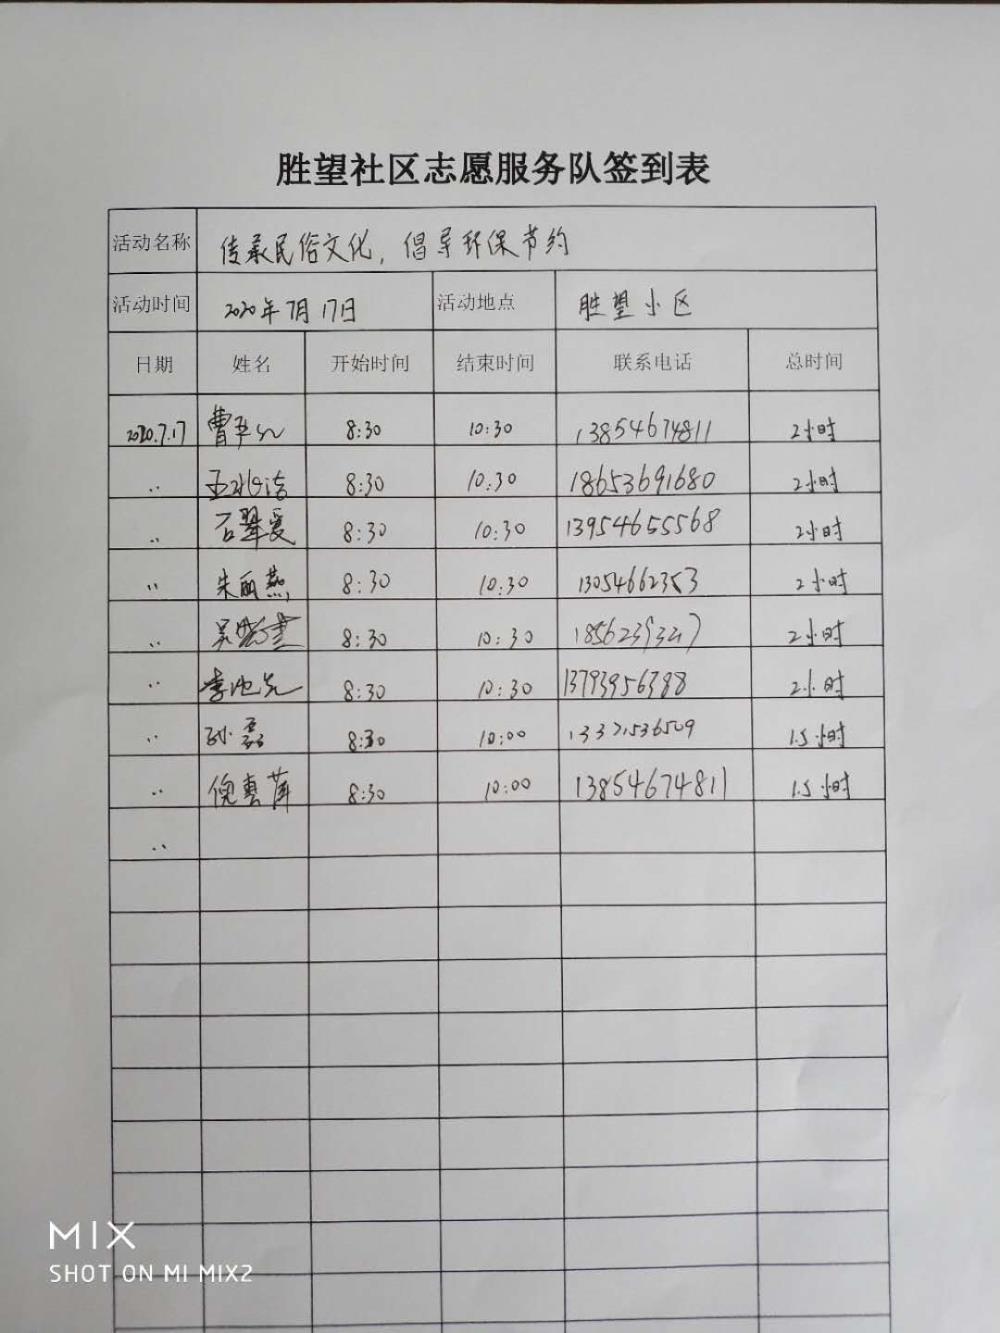 胜望社区志愿服务队签到表
活动名称 传承民俗文化，倡导环保节约
活动时间 2020年7月17日 活动地点 胜望小区
日期 姓名 开始时间 结束时间 联系电话 总时间
2020.7.17 曹 8:30 10:30 13854674811 2小时
〃 8:30 10:30 18653691680 2小时
〃 石翠爱 8:30 10:30 13954655568 2小时
〃 朱丽燕 8:30 10:30 2小时
〃 吴 8:30 10:30 2小时
〃 李 8:30 10:30 2小时
〃 孙磊 8:30 10:00 1.5小时
〃 倪惠萍 8:30 10:00 13854674811 1.5小时
〃
MIX
SHOT ON MI MIX2